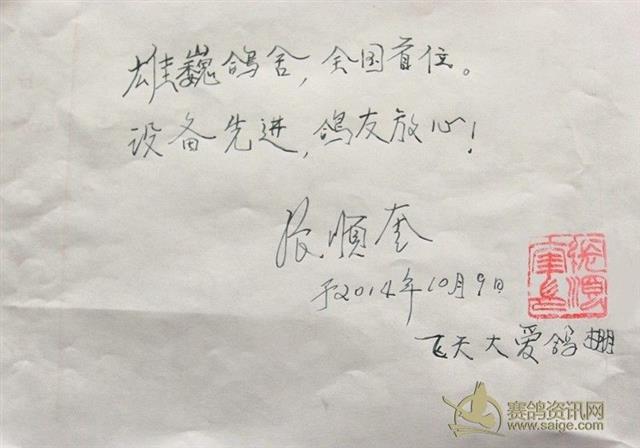 雄巍鸽舍，全国首位。
设备先进，鸽友放心！
张顺奎
于2014年10月9日
飞天大爱鸽棚
赛鸽资讯网
www.saige.com